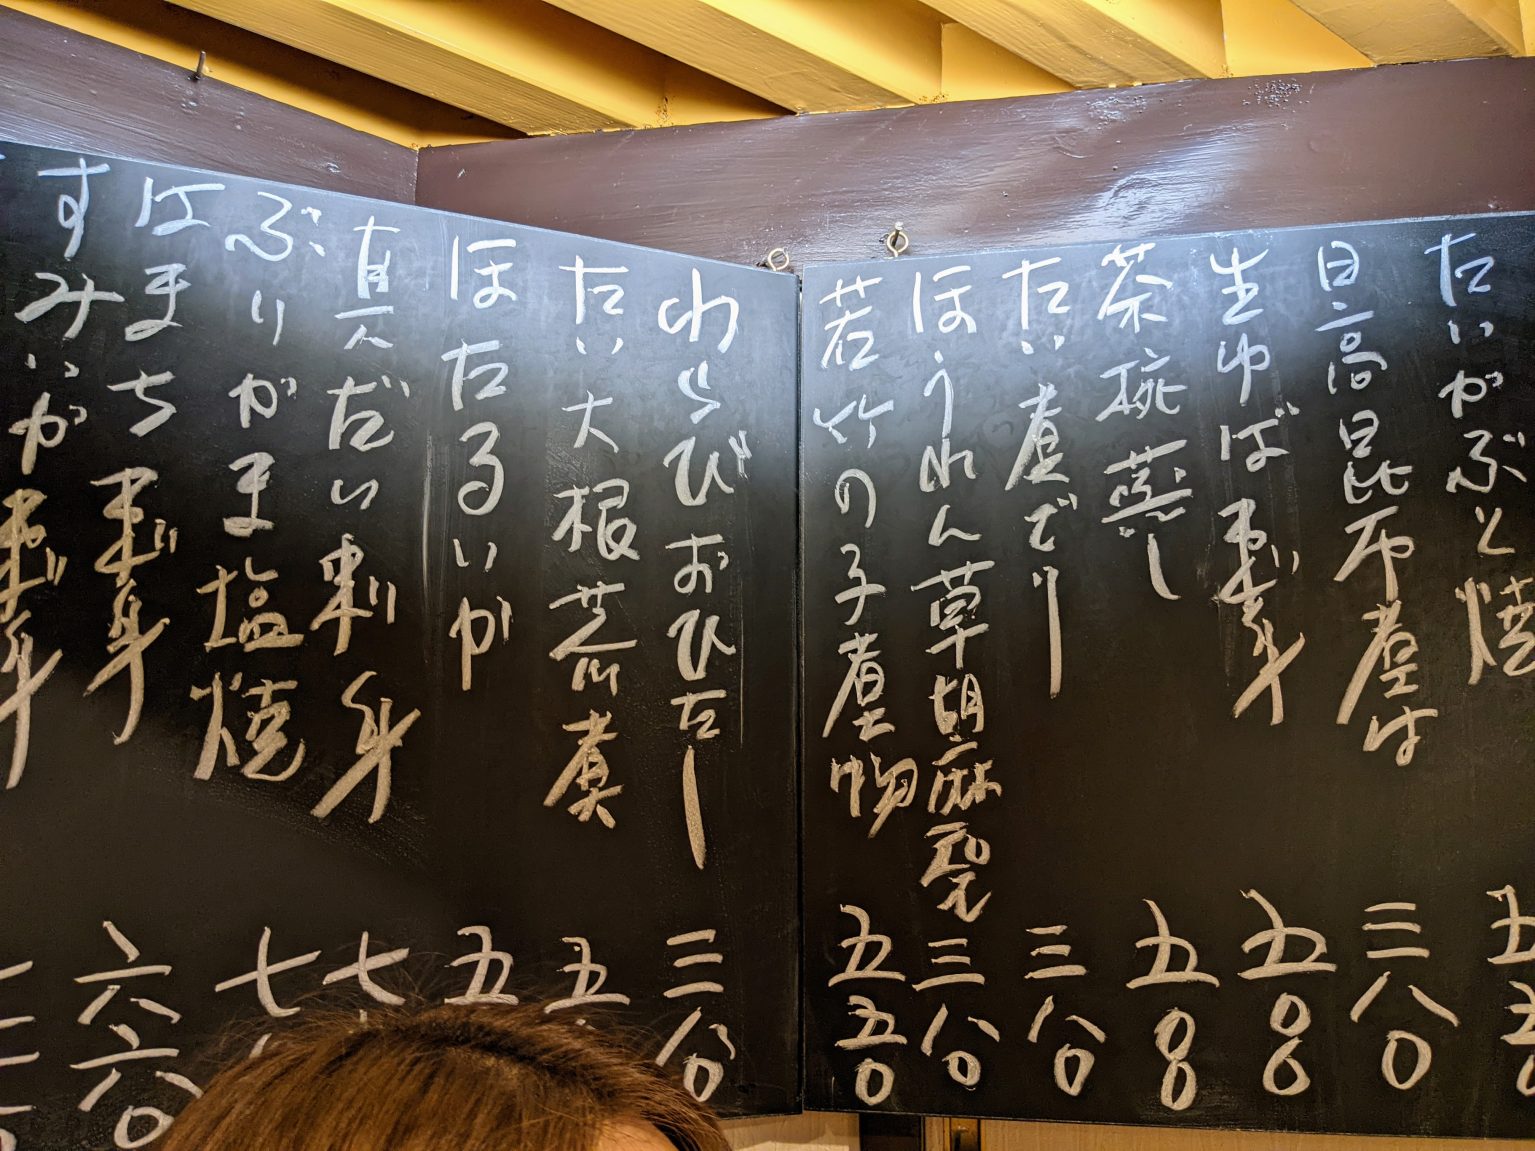 たいかぶと焼
日高昆布煮は 三八〇
生ゆば刺身 五〇〇
茶椀蒸し 五〇〇
たい煮でり 三八〇
ほうれん草胡麻和え 三八〇
若竹の子煮物 五五〇
わらびおひたし 三八〇
たい大根荒煮 五
ほたるいか 五
真だい刺身 七
ぶりかま塩焼 七
はまち刺身 六六〇
すみいか刺身